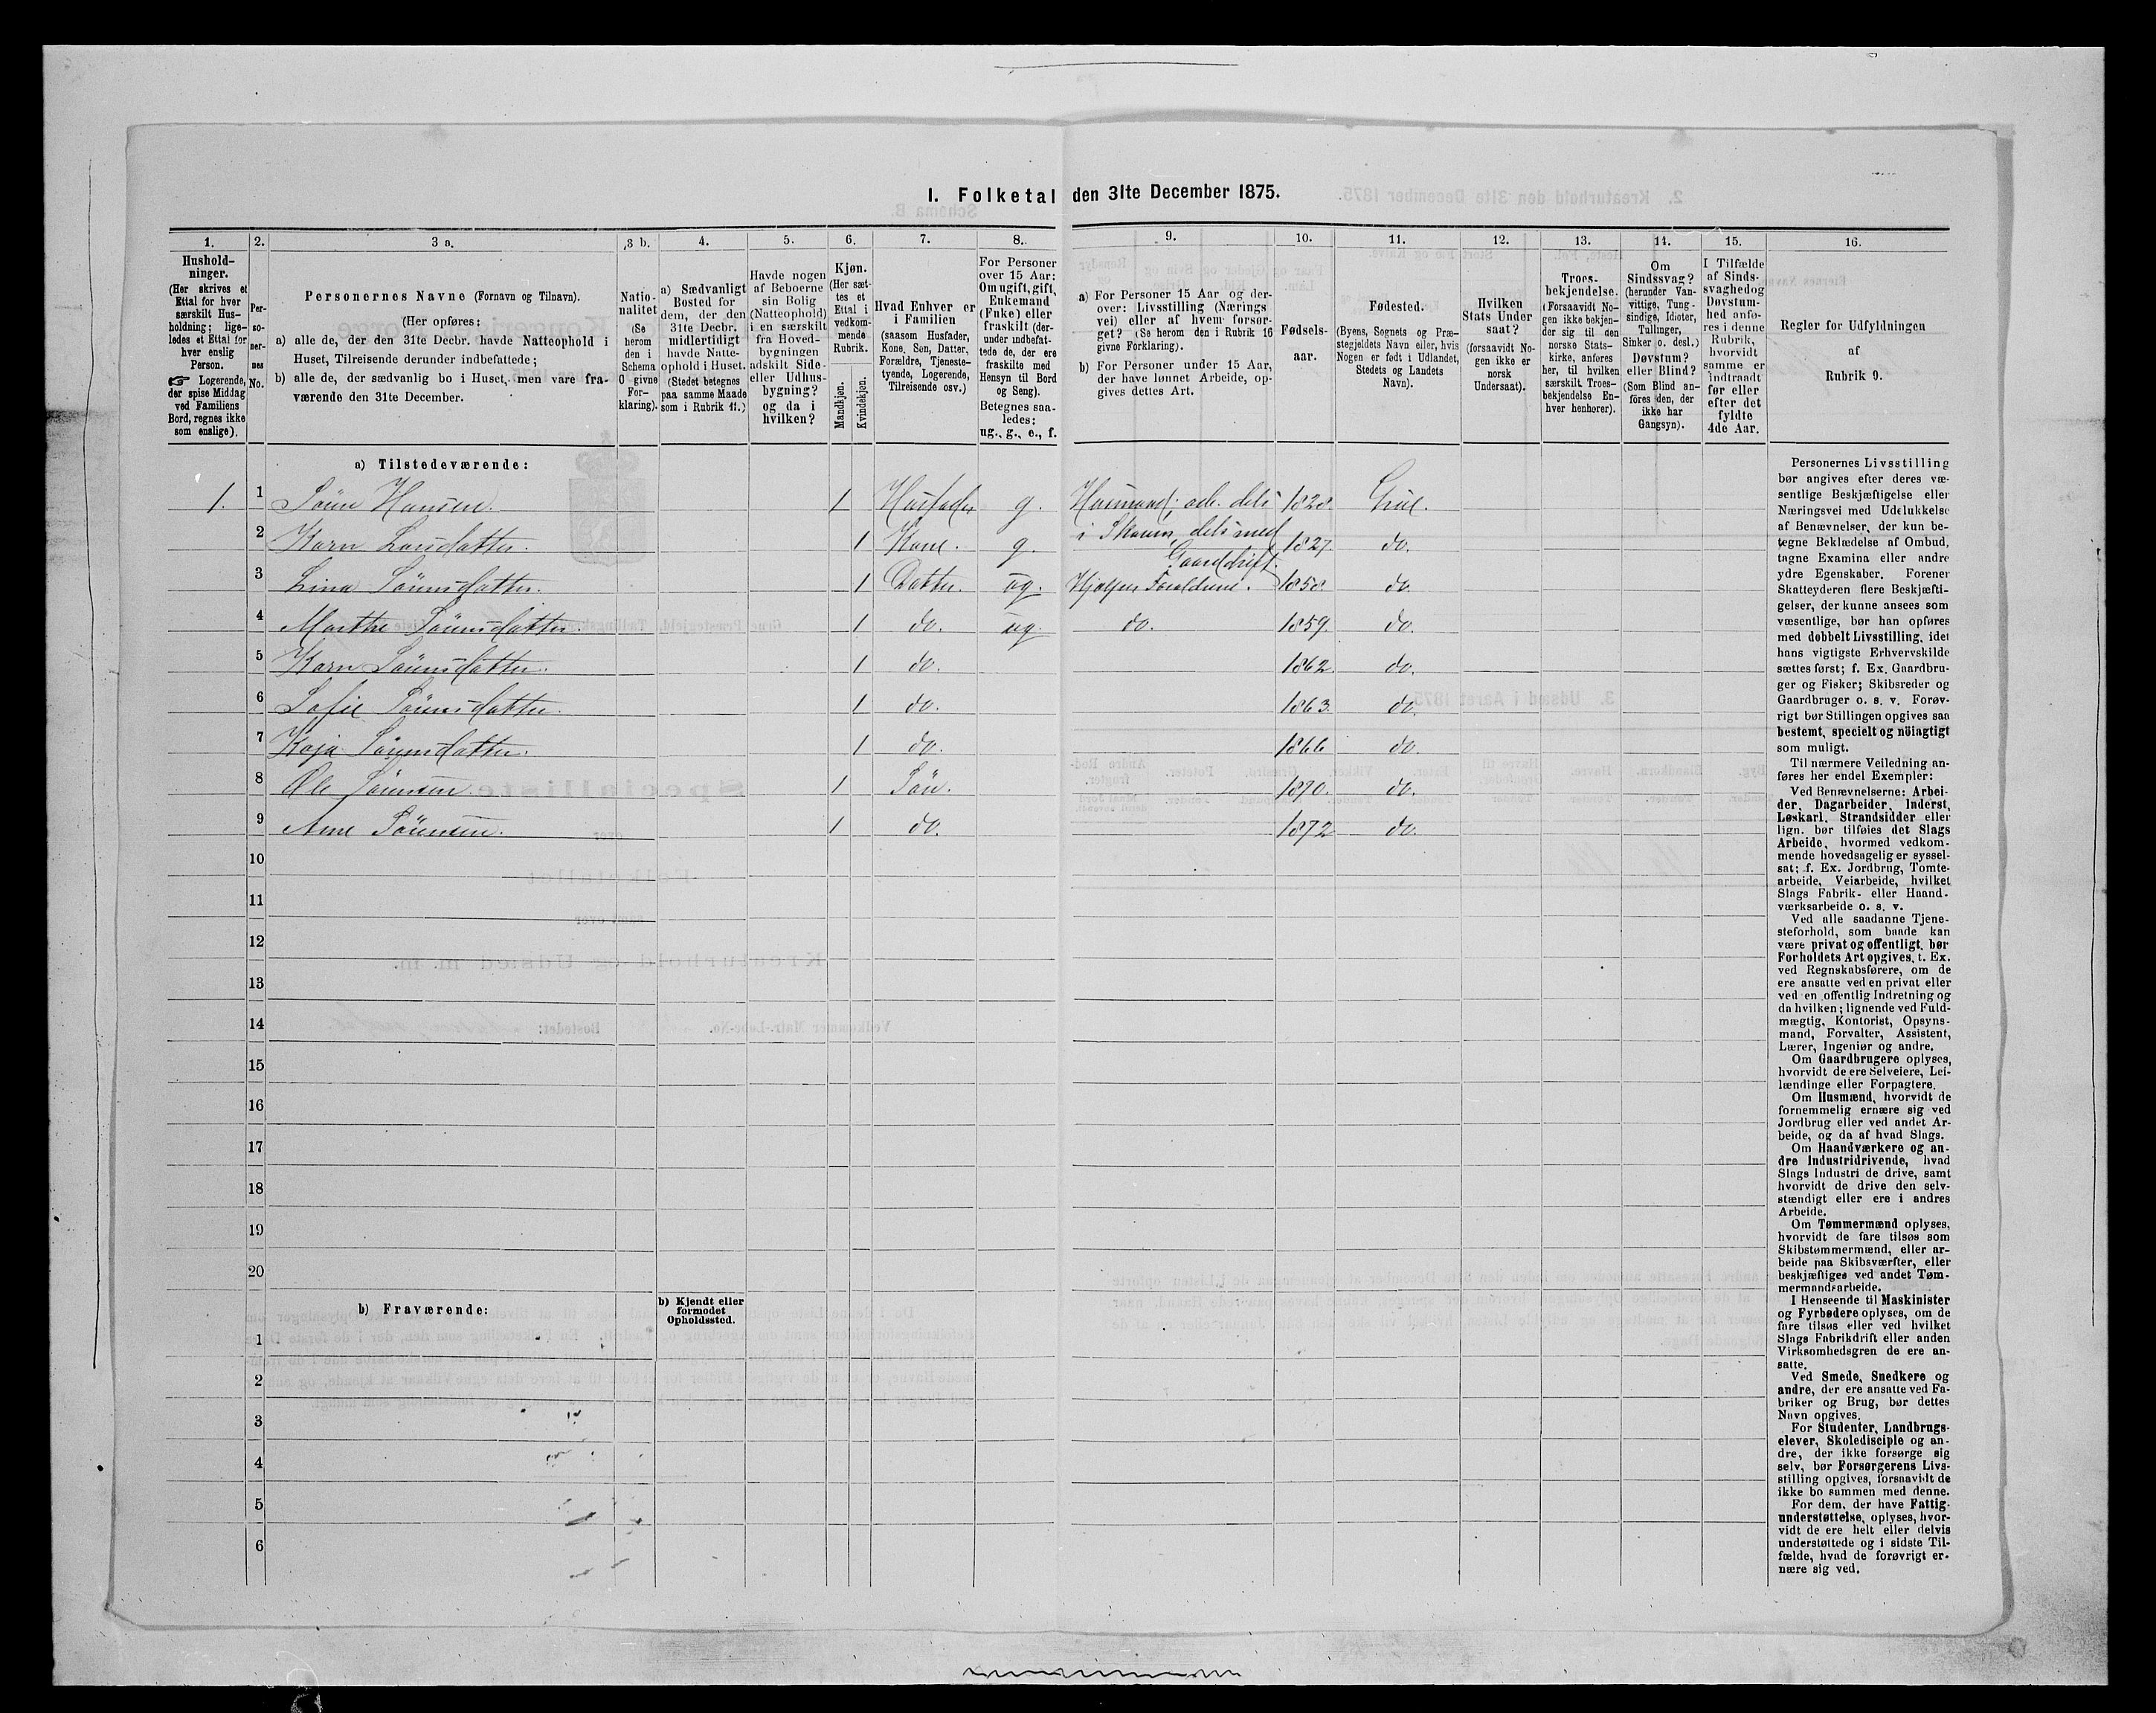 I. Folketal den 31te December 1875.
1.
Hushold-
ninger.
(Her skrives et
Ettal for hver
særskilt Hus-
holdning; lige-
ledes et Ettal for
hver enslig
Person.
☞ Logerende,
der spise Middag
ved Familiens
Bord, regnes ikke
som enslige).
2.
Per-
so-
ner-
nes
No.
3 a.
Personernes Navne (Fornavn og Tilnavn).
(Her opføres:
a) alle de, der den 31te Decbr. havde Natteophold i
Huset, Tilreisende derunder indbefattede;
b) alle de, der sædvanlig bo i Huset, men vare fra-
værende den 31te December.
3 b.
Natio-
nalitet
(Se
herom
den i
Schema
O givne
For-
klaring).
4.
a) Sædvanligt
Bosted for
dem, der den
31te Decbr.
midlertidigt
havde Natte-
ophold i Huset.
(Stedet betegnes
paa samme Maade
som i Rubrik 11.)
5.
Havde nogen
af Beboerne
sin Bolig
(Natteophold)
i en særskilt
fra Hoved-
bygningen
adskilt Side-
eller Udhus-
bygning?
og da i
hvilken?
6.
Kjøn.
(Her sæt-
tes et
Ettal i
vedkom-
mende
Rubrik.
Mandkjøn.
Kvindekjøn.
7.
Hvad Enhver er
i Familien
(saasom Husfader,
Kone, Søn, Datter,
Forældre, Tjeneste-
tyende, Logerende,
Tilreisende osv.)
8.
For Personer
over 15 Aar:
Om ugift, gift,
Enkemand
(Enke) eller
fraskilt (der-
under indbefat-
tede de, der ere
fraskilte med
Hensyn til Bord
og Seng).
Betegnes saa-
ledes:
ug., g., e., f.
9.
a) For Personer 15 Aar og der-
over: Livsstilling (Nærings
vei) eller af hvem forsør-
get? (Se herom den i Rubrik 16
givne Forklaring).
b) For Personer under 15 Aar,
der have lønnet Arbeide, op-
gives dettes Art.
10.
Fødsels-
aar.
11.
Fødested.
(Byens, Sognets og Præ-
stegjeldets Navn eller, hvis
Nogen er født i Udlandet,
Stedets og Landets
Navn).
12.
Hvilken
Stats Under
saat?
(forsaavidt No-
gen ikke er
norsk
Undersaat).
13.
Troes-
bekjendelse.
(Forsaavidt No-
gen ikke bekjen-
der sig til den
norske Stats-
kirke, anføres
her, til hvilken
særskilt Troes-
bekjendelse En-
hver henhører).
14.
Om
Sindssvag?
(herunder Van-
vittige, Tung-
sindige, Idioter,
Tullinger,
Sinker o. desl.)
Døvstum?
eller Blind?
(Som Blind an-
føres den, der
ikke har
Gangsyn).
15.
I Tilfælde
af Sinds-
svaghedog
Døvstum-
hed anfø-
res i denne
Rubrik,
hvorvidt
samme er
indtraadt
før eller
efter det
fyldte
4de Aar.
16.
Regler for Udfyldningen
af
Rubrik 9.
a) Tilstedeværende:
1. 1 Søren Hansen. 1 Husfader g. Husmand; arb. dels 1828. Grue.
2 Karn Larsdatter. 1 Kone. g. i Skoven, dels med Gaarddrift. 1827. do.
3 Lina Sörensdatter. 1 Datter. ug. Hjælper Forældrene. 1858. do.
4 Marthe Sörensdatter. 1 do. ug. do. 1859. do.
5 Karn Sörensdatter. 1 do. 1862. do.
6 Sofie Sörensdatter. 1 do. 1863. do.
7 Kaja Sörensdatter. 1 do. 1866 do.
8 Ole Sörensen. 1 Sön. 1870. do.
9 Arne Sörensen. 1 do. 1872 do.
10
11
12
13
14
15
16
17
18
19
20
b) Fraværende:
b) Kjendt eller
formodet
Opholdssted.
1
2
3
4
5
6
Personernes Livsstilling
bør angives efter deres væ-
sentlige Beskjæftigelse eller
Næringsvei med Udelukkelse
af Benævnelser, der kun be-
tegne Beklædelse af Ombud,
tagne Examina eller andre
ydre Egenskaber. Forener
Skatteyderen flere Beskjæfti-
gelser, der kunne ansees som
væsentlige, bør han opføres
med dobbelt Livsstilling, idet
hans vigtigste Erhvervskilde
sættes først; f. Ex. Gaardbru-
ger og Fisker; Skibsreder og
Gaardbruger o. s. v. Forøv-
rigt bør Stillingen opgives saa
bestemt, specielt og nöiagtigt
som muligt.
Til nærmere Veiledning an-
føres her endel Exempler:
Ved Benævnelserne: Arbei-
der, Dagarbeider, Inderst,
Løskarl, Strandsidder eller
lign. bør tilføies det Slags
Arbeide, hvormed vedkom-
mende hovedsagelig er syssel-
sat; f. Ex. Jordbrug, Tomte-
arbeide, Veiarbeide, hvilket
Slags Fabrik- eller Haand-
værksarbeide o. s. v.
Ved alle saadanne Tjene-
steforhold, som baade kan
være privat og offentligt, bør
Forholdets Art opgives, t. Ex.
ved Regnskabsførere, om de
ere ansatte ved en privat eller
ved en offentlig Indretning og
da hvilken; lignende ved Fuld-
mægtig, Kontorist, Opsyns-
mand, Forvalter, Assistent,
Lærer, Ingeniør og andre.
Om Gaardbrugere oplyses,
hvorvidt de ere Selveiere, Lei-
lændinge eller Forpagtere.
Om Husmænd, hvorvidt de
fornemmelig ernære sig ved
Jordbrug eller ved andet Ar-
beide, og da af hvad Slags.
Om Haandværkere og an-
dre Industridrivende, hvad
Slags Industri de drive, samt
hvorvidt de drive den selv-
stændigt eller ere i andres
Arbeide.
Om Tømmermænd oplyses,
hvorvidt de fare tilsøs som
Skibstømmermænd, eller ar-
beide paa Skibsværfter, eller
beskjæftiges ved andet Tøm-
mermandsarbeide.
I Henseende til Maskinister
og Fyrbødere oplyses, om de
fare tilsøs eller ved hvilket
Slags Fabrikdrift eller anden
Virksomhedsgren de ere an-
satte.
Ved Smede, Snedkere og
andre, der ere ansatte ved Fa-
briker og Brug, bør dettes
Navn opgives.
For Studenter, Landbrugs-
elever, Skoledisciple og an-
dre, der ikke forsørge sig
selv, bør Forsørgerens Livs-
stilling opgives, forsaavidt de
ikke bo sammen med denne.
For dem, der have Fattig-
understøttelse, oplyses, hvor-
vidt de ere helt eller delvis
understøttede og i sidste Til-
fælde, hvad de forøvrigt er-
nære sig ved.